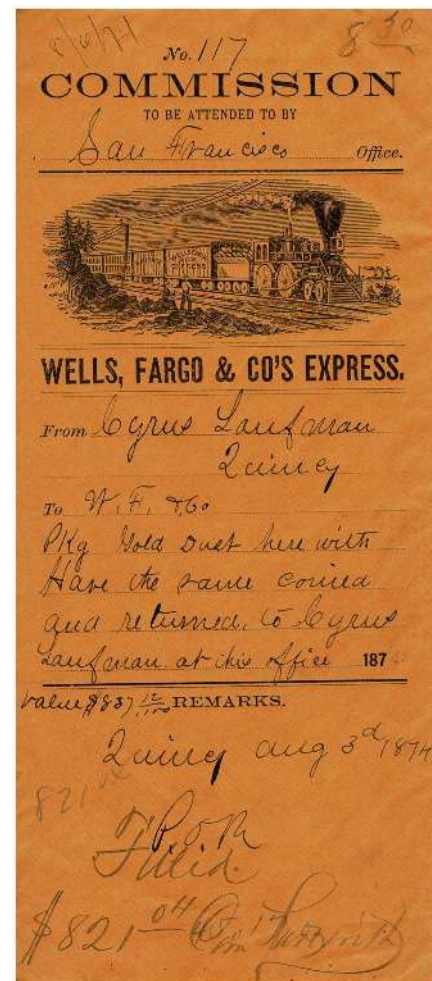 8 50
No. 117
COMMISSION
TO BE ATTENDED TO BY
San Francisco Office.
WELLS, FARGO & CO'S EXPRESS.
From Cyrus Laufman
Quincy
To W. F. & Co
Pkg Gold Dust here with
Have the same coined
and returned, to Cyrus
Laufman at this office 187
value $837 12/100 REMARKS.
Quincy Aug 3d 1874
821 04
Filled.
$821 04